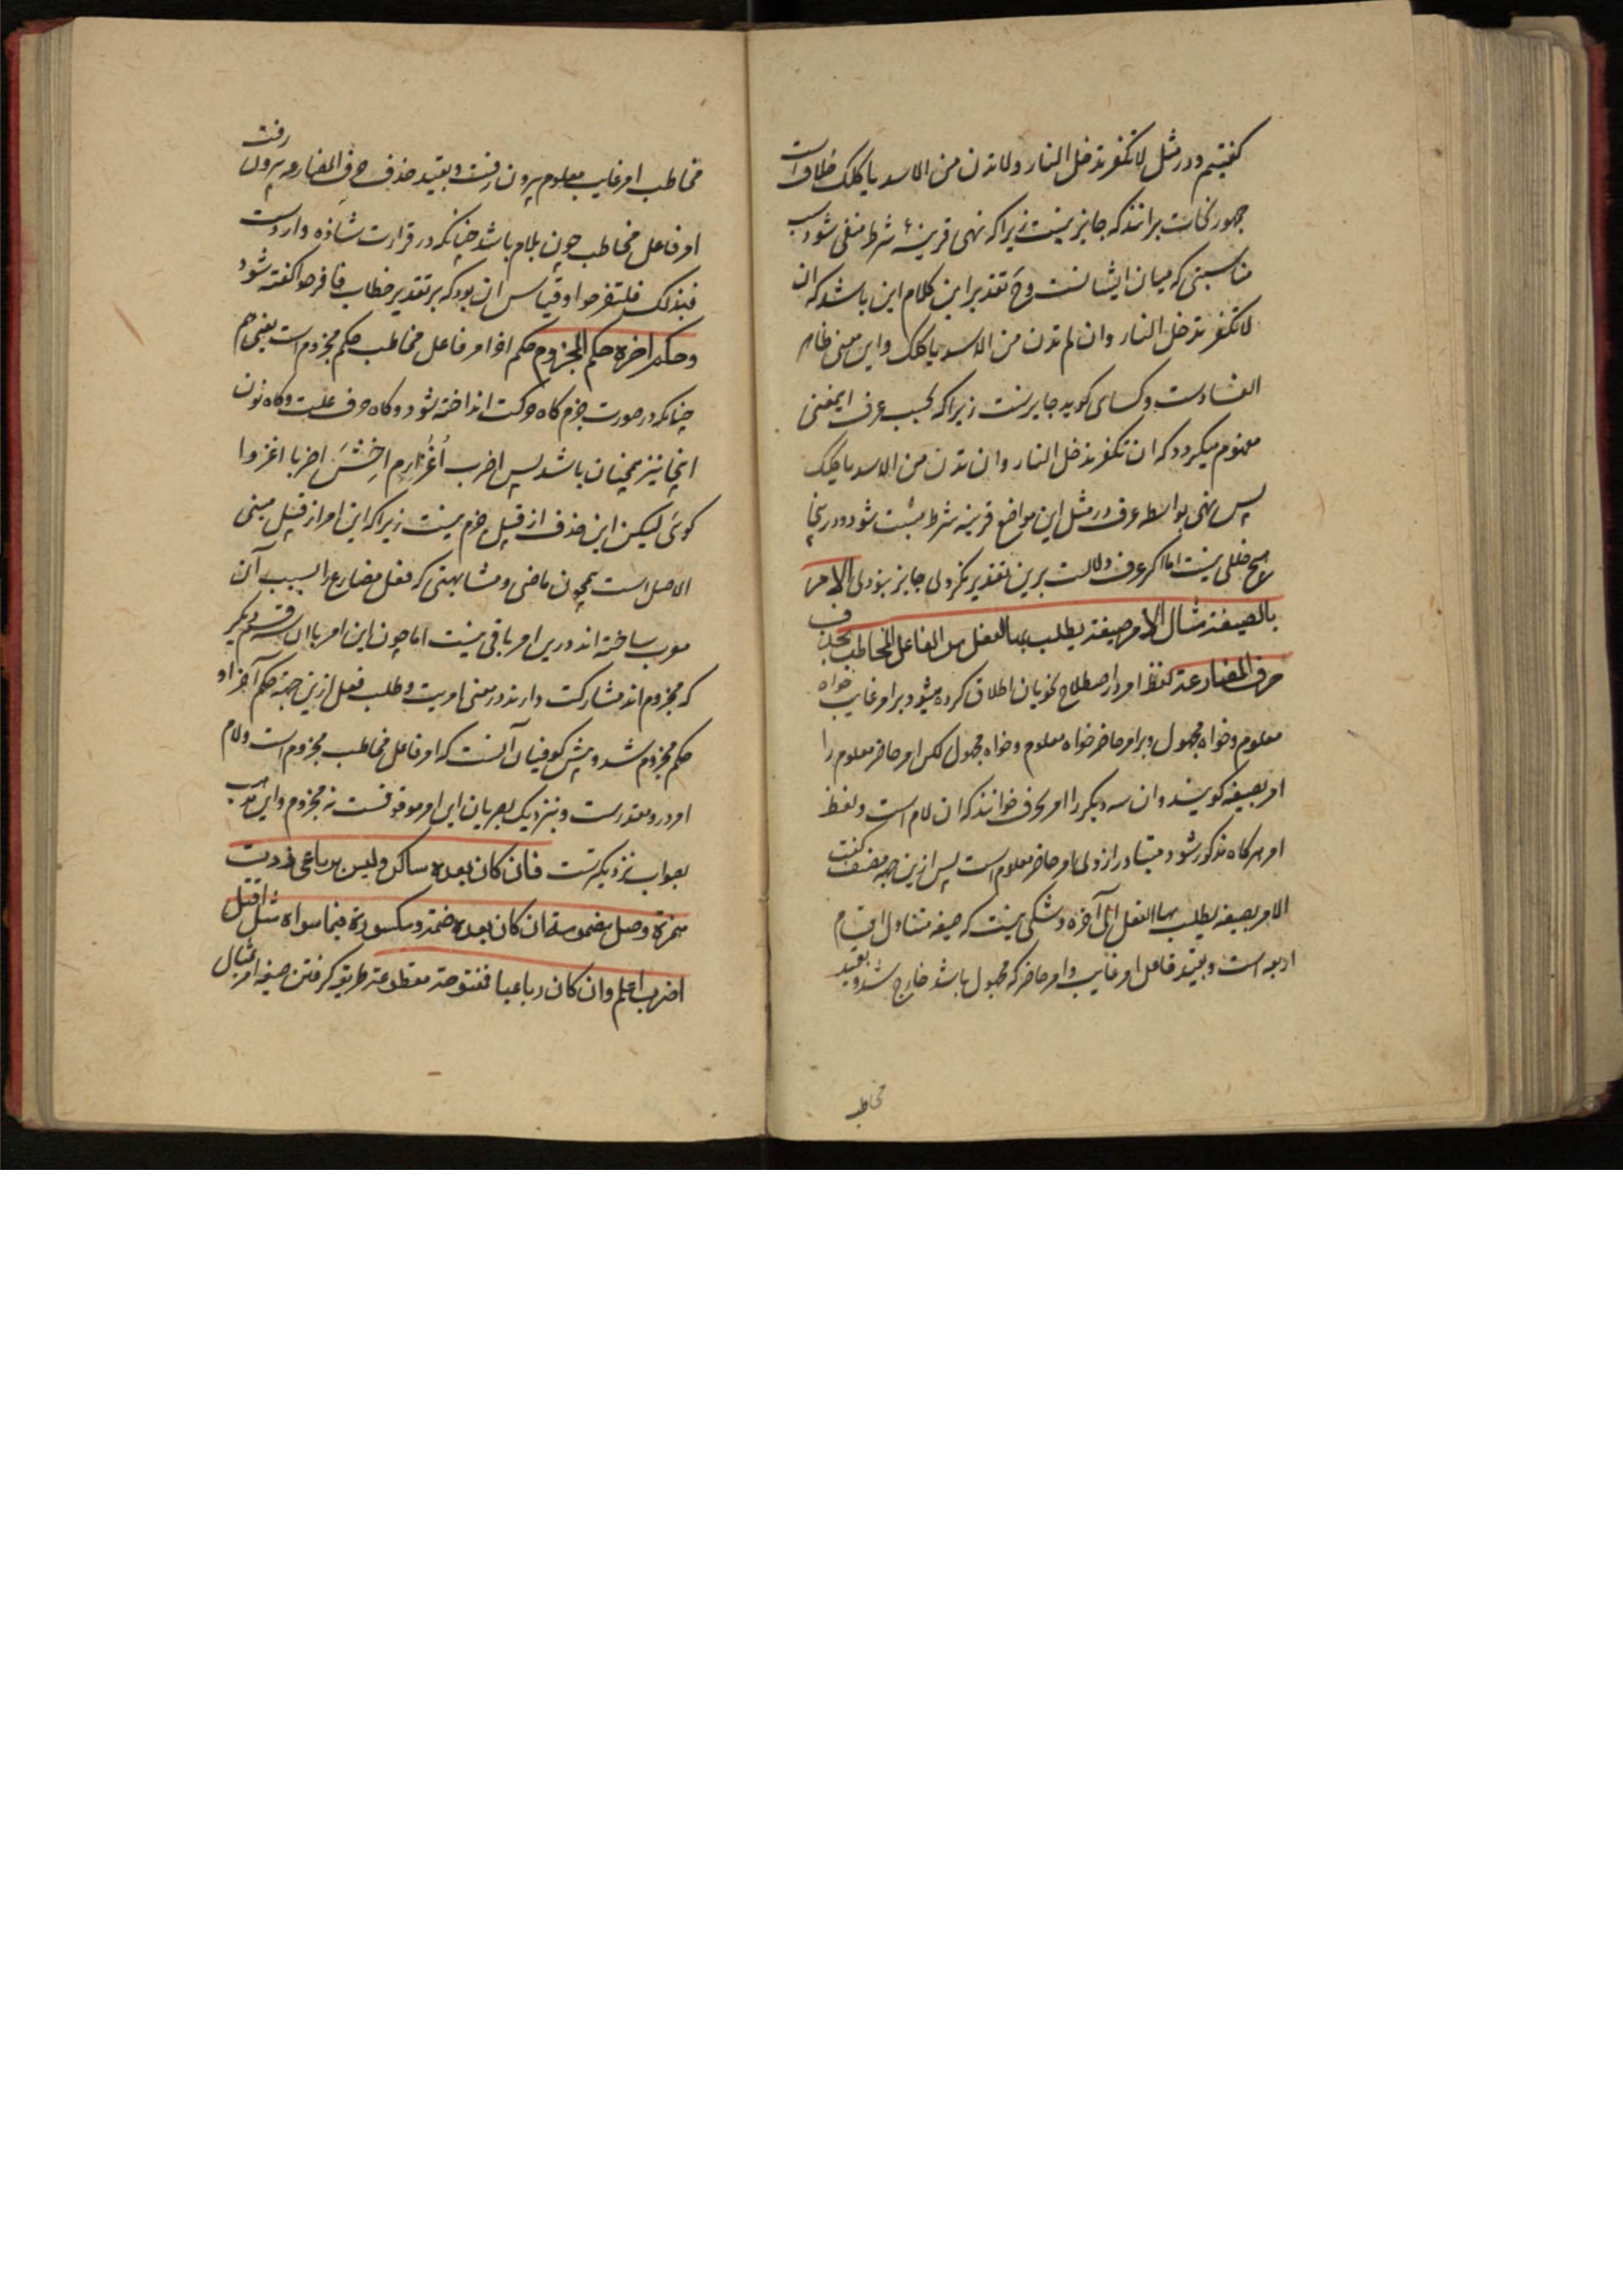 کفتیم و در مثل لا تکفر تدخل النار و لا تدن من الاسد یاکلک خلاف است
جمهور نحات برانند که جایز نیست زیرا که نهی قرینهٔ شرط منفی شود بسبب
مناسبتی که میان ایشانست و ح تقدیر این کلام این باشد که ان
لا تکفر تدخل النار و ان لم تدن من الاسد یاکلک و این معنی ظاهر
الفسادست و کسای کوید جایزست زیرا که بحسب عرف ایمعنی
مفهوم میکردد که ان تکفر تدخل النار و ان تدن من الاسد یاکلک
پس نهی بواسطه عرف در مثل این مواضع قرینه شرط مثبت شود و درینجا
هیچ خللی نیست اما اکر عرف دلالت برین تقدیر نکردی جایز نبودی الامر
بالصیغة مثال الامر صیغة یطلب بها الفعل من الفاعل المخاطب بحذف
حرف المضارعة لفظ امر در اصطلاح نحویان اطلاق کرده میشود بر امر غایب خواه
معلوم و خواه مجهول و بر امر حاضر خواه معلوم و خواه مجهول لکن امر حاضر معلوم را
امر بصیغه کویند و ان سه دیکر را امر بحرف خوانند که ان لام است و لفظ
امر هرکاه مذکور شود متبادر ازو امر حاضر معلوم است پس ازین جهة مصنف کفت
الامر بصیغه یطلب بها الفعل الی آخره و شکی نیست که صیغه متناول اقسام
اربعه است و بقید فاعل امر غایب و امر حاضر که مجهول باشد خارج شد و بقید
مخاطب
مخاطب امر غایب معلوم بیرون رفت و بقید حذف حرف المضارعه بیرون رفت
امر فاعل مخاطب چون بلام باشد چنانکه در قراءت شاذه واردست
فبذلک فلتفرحوا و قیاس ان بود که بر تقدیر خطاب فافرحوا کفته شود
و حکم اخره حکم المجزوم حکم اخر امر فاعل مخاطب حکم مجزوم است یعنی هم
چنانکه در صورت جزم کاه حرکت انداخته شود و کاه حرف علت و کاه نون
اینجا نیز همچنان باشد پس اضرب اغز ارم اخش اضربا اغزوا
کوئی لیکن این حذف از قبیل جزم نیست زیرا که این امر از قبیل مبنی
الاصل است همچون ماضی و مشابهتی که فعل مضارع را بسبب آن
معرب ساخته اند درین امر باقی نیست اما چون این امر با ان سه قسم دیکر
که مجزوم اند مشارکت دارند در معنی امریت و طلب فعل ازین جهة حکم آخر او
حکم مجزوم شد و پیش کوفیان آنست که امر فاعل مخاطب مجزوم است و لام
امر درو مقدرست و بنزدیک بصریان این امر موقوفست نه مجزوم و این مذهب
بصواب نزدیکترست فان کان بعده ساکن و لیس برباعی زدت
همزة وصل مضمومة ان کان بعده ضمة و مکسورة فیما سواه مثل اقتل
اضرب اعلم و ان کان رباعیا فمفتوحة مقطوعة طریقه کرفتن صیغه امر مثال